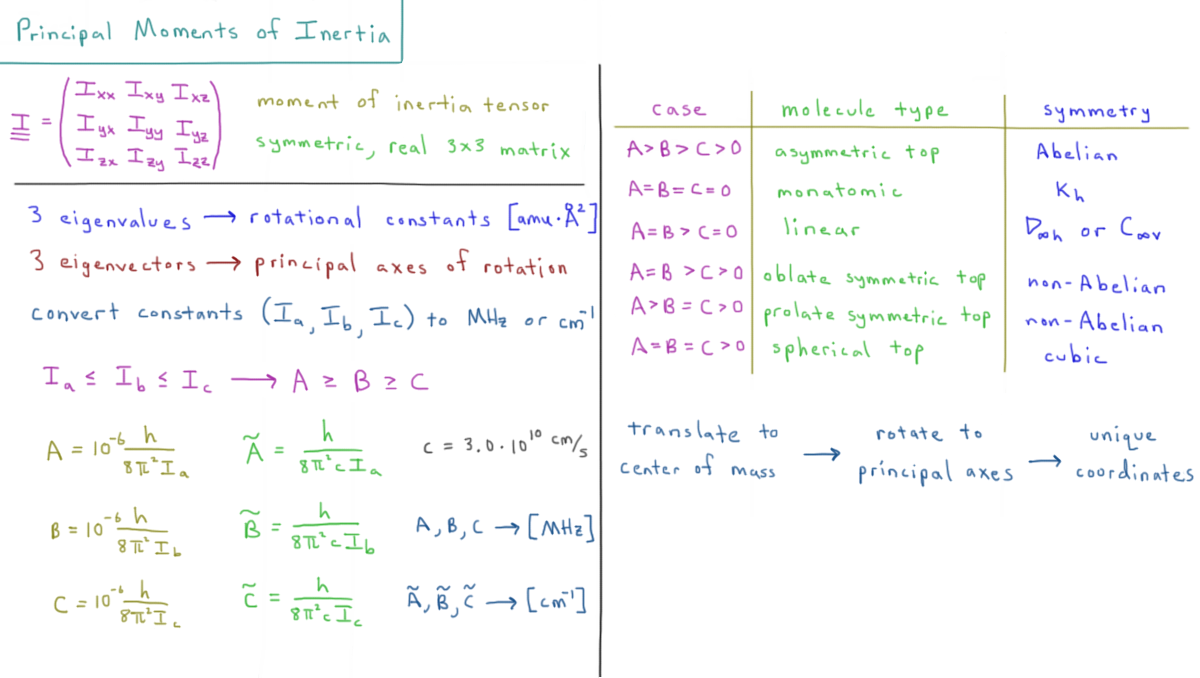 Principal Moments of Inertia
I = ( Ixx Ixy Ixz
Iyx Iyy Iyz
Izx Izy Izz )
moment of inertia tensor
symmetric, real 3x3 matrix
3 eigenvalues → rotational constants [amu·Å²]
3 eigenvectors → principal axes of rotation
convert constants (Ia, Ib, Ic) to MHz or cm⁻¹
Ia ≤ Ib ≤ Ic → A ≥ B ≥ C
A = 10⁻⁶ h / 8π²Ia
Ã = h / 8π²cIa
c = 3.0·10¹⁰ cm/s
B = 10⁻⁶ h / 8π²Ib
B̃ = h / 8π²cIb
A, B, C → [MHz]
C = 10⁻⁶ h / 8π²Ic
C̃ = h / 8π²cIc
Ã, B̃, C̃ → [cm⁻¹]
case molecule type symmetry
A>B>C>0 asymmetric top Abelian
A=B=C=0 monatomic Kh
A=B>C=0 linear D∞h or C∞v
A=B>C>0 oblate symmetric top non-Abelian
A>B=C>0 prolate symmetric top non-Abelian
A=B=C>0 spherical top cubic
translate to center of mass → rotate to principal axes → unique coordinates